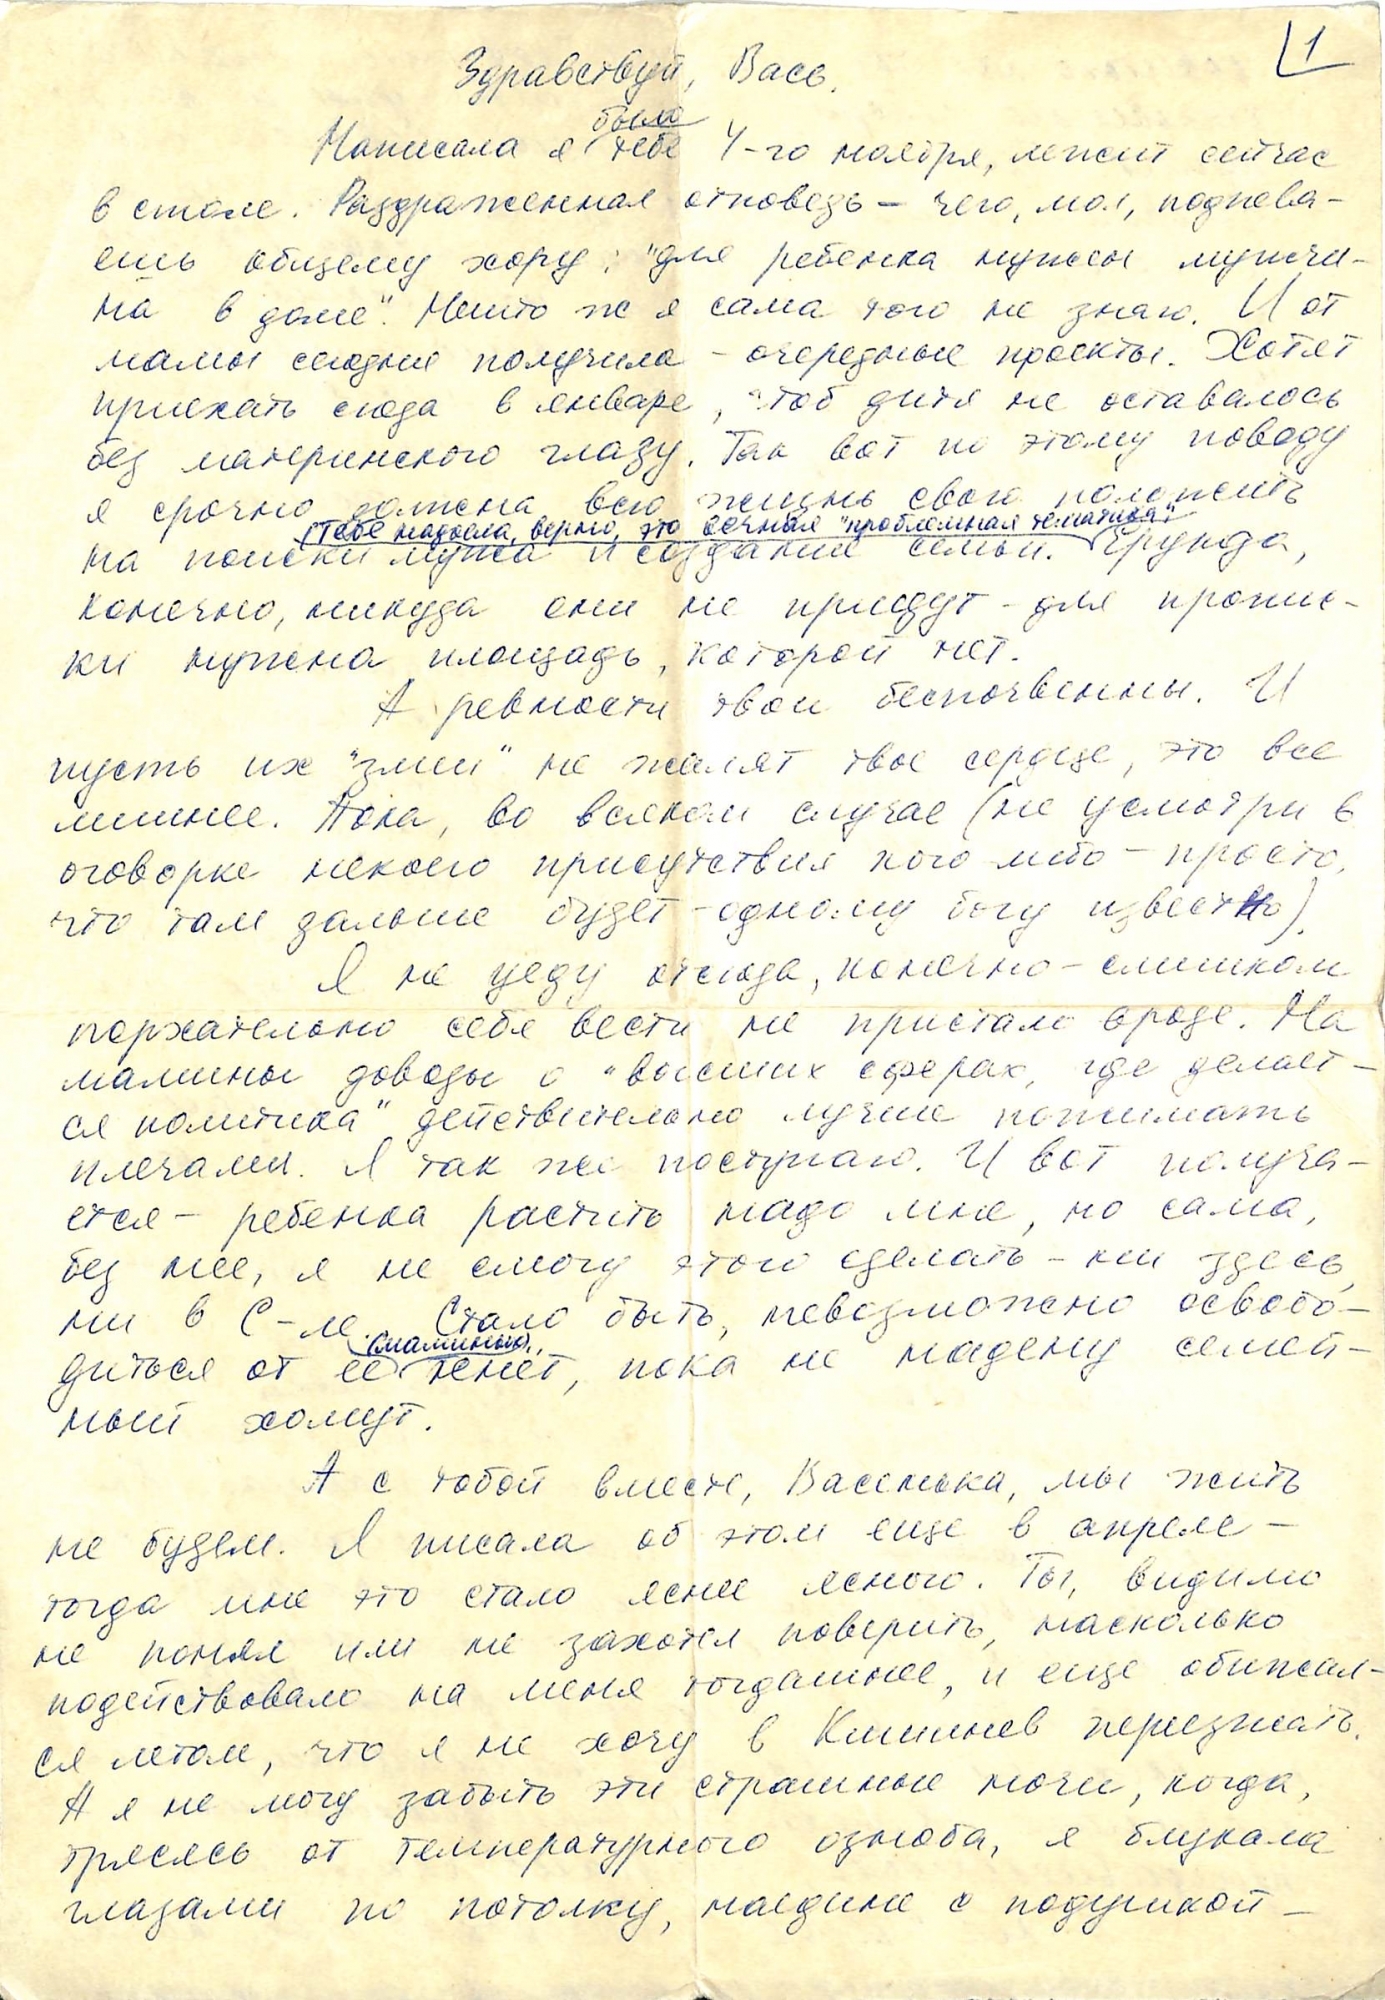 1
Здравствуй, Вась.
было
Написала я тебе 4-го ноября, лежит сейчас
в столе. Раздраженная отповедь – чего, мол, подпева-
ешь общему хору: "для ребенка нужен мужчи-
на в доме". Нешто ж я сама того не знаю. И от
мамы сегодня получила – очередные проекты. Хотят
приехать сюда в январе, чтоб дитя не оставалось
без материнского глазу. Так вот по этому поводу
я срочно должна всю жизнь свою положить
(Тебе надоела, верно, эта вечная "проблемная тематика")
на поиски мужа и создание семьи. Ерунда,
конечно, никуда они не приедут – для пропис-
ки нужна площадь, которой нет.
А ревности твои беспочвенны. И
пусть их "змеи" не жалят твое сердце, это все
лишнее. Пока, во всяком случае (не усмотри в
оговорке некоего присутствия кого либо – просто,
что там дальше будет – одному богу известно).
Я не уеду отсюда, конечно – слишком
поржательно себя вести не пристало вроде. На
мамины доводы о "высших сферах, где делает-
ся политика" действительно лучше пожимать
плечами. Я так же поступаю. И вот получа-
ется – ребенка растить надо мне, но сама,
без нее, я не смогу этого сделать – ни здесь,
ни в С-ле. Стало быть, невозможно освобо-
(маминых)
диться от ее тенет, пока не надену семей-
ный хомут.
А с тобой вместе, Васенька, мы жить
не будем. Я писала об этом еще в апреле –
тогда мне это стало яснее ясного. Ты, видимо
не понял или не захотел поверить, насколько
подействовало на меня тогдашнее, и еще обижал-
ся летом, что я не хочу в Кишинев переезжать.
А я не могу забыть эти страшные ночи, когда,
трясясь от температурного озноба, я блукала
глазами по потолку, наедине с подушкой –